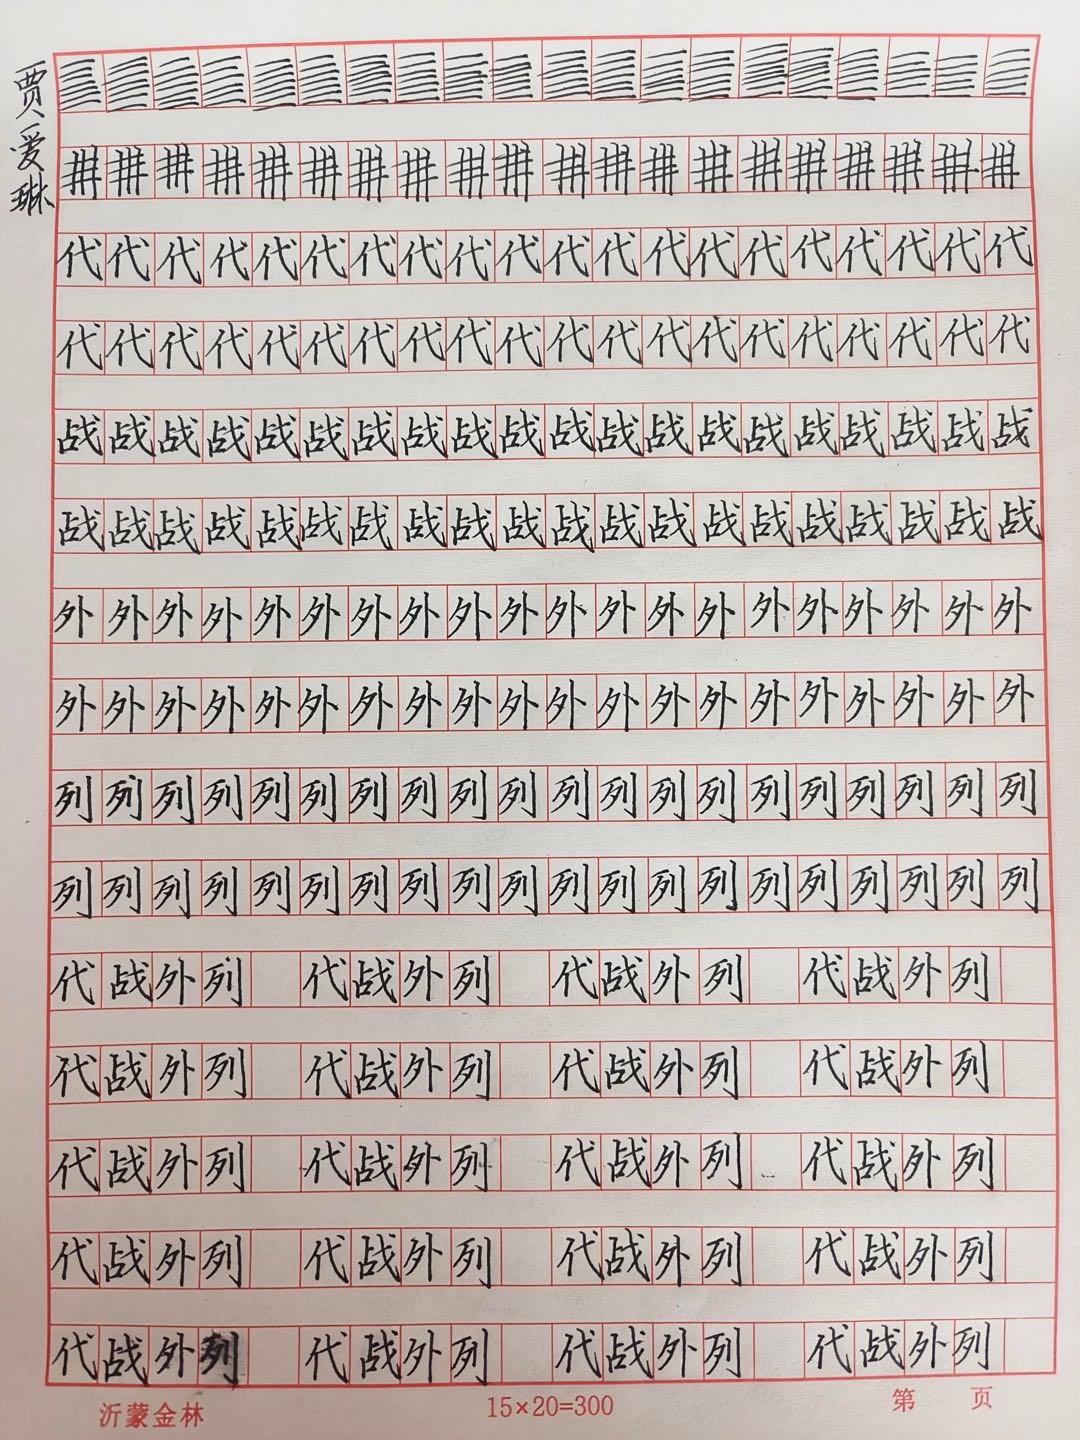 贾爱琳
代代代代代代代代代代代代代代代代代代代代
代代代代代代代代代代代代代代代代代代代代
战战战战战战战战战战战战战战战战战战战战
战战战战战战战战战战战战战战战战战战战战
外外外外外外外外外外外外外外外外外外外外
外外外外外外外外外外外外外外外外外外外外
列列列列列列列列列列列列列列列列列列列列
列列列列列列列列列列列列列列列列列列列列
代战外列 代战外列 代战外列 代战外列
代战外列 代战外列 代战外列 代战外列
代战外列 代战外列 代战外列 代战外列
代战外列 代战外列 代战外列 代战外列
代战外列 代战外列 代战外列 代战外列
沂蒙金林 15×20=300 第 页